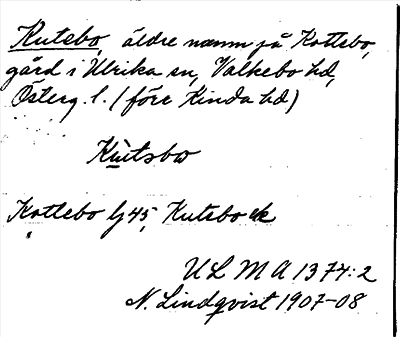 Kutebo, äldre namn på Kottebo,
gård i Ulrika sn, Valkebo hd,
Österg. l. (förr Kinda hd)
Kùtsbω
Kottebo Lj 45, Kutebo ek
ULMA 1374:2
N. Lindqvist 1907-08